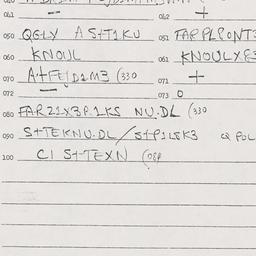 041 — 042 +
050 QGLY A S+T1KU 051 FARPLPONT3
060 KNOUL 061 KNOULXE3
070 A++FE/D1M3 (330 071 +
072 — 073 0
080 FAR21X3P.1KS NU.DL (330
090 S++TEKNU.DL/S+P1LSK3 Q POL
100 CI S++TEXN (08P